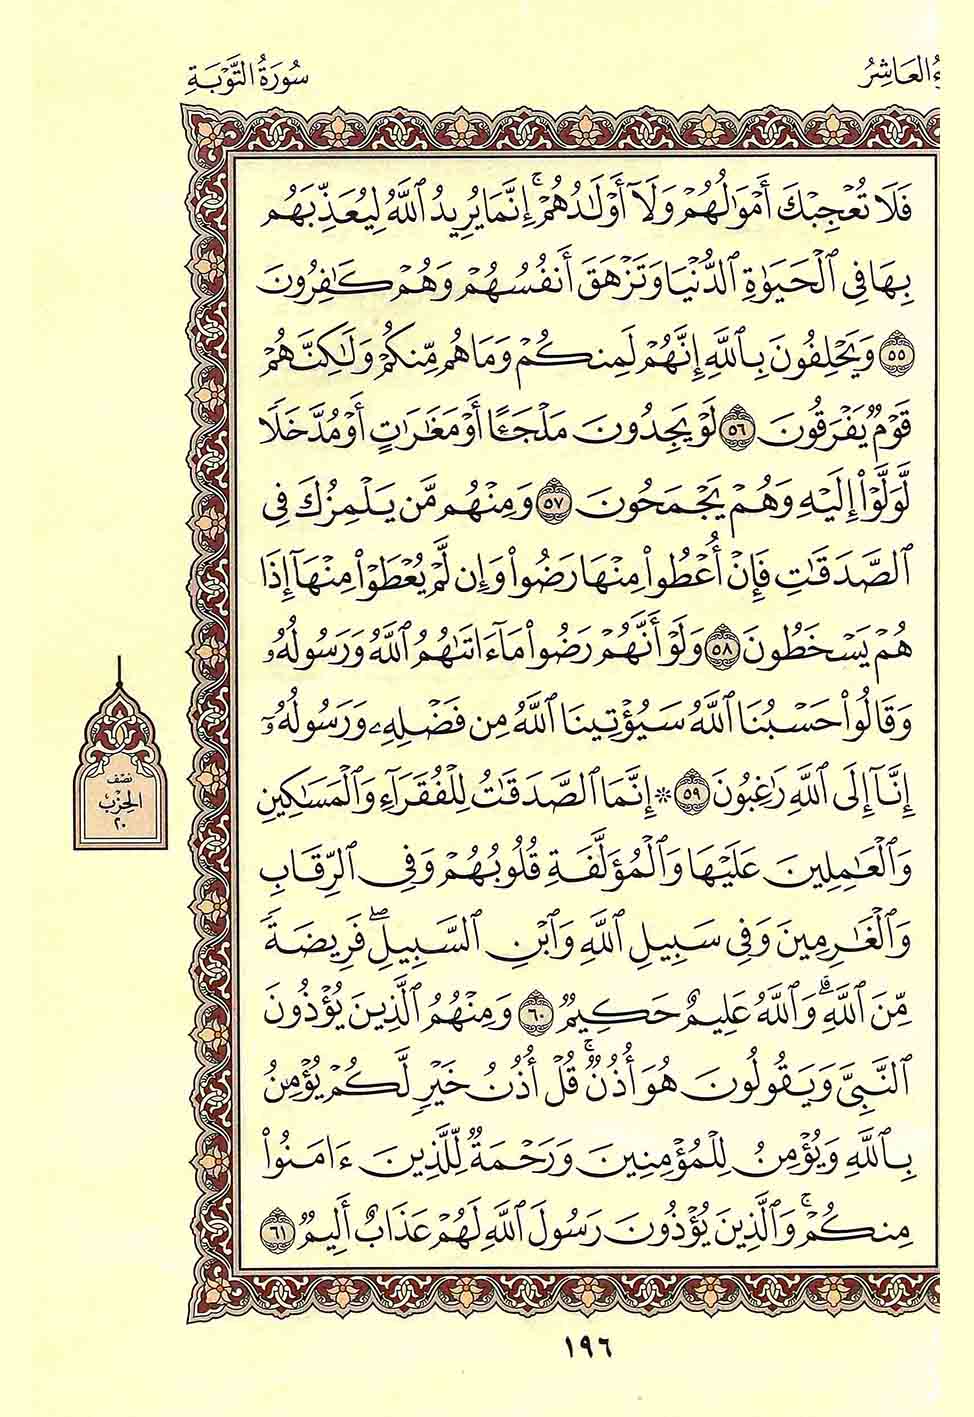 ءُ العَاشِرُ
سُورَةُ التَّوْبَةِ
فَلَا تُعْجِبْكَ أَمْوَٰلُهُمْ وَلَآ أَوْلَٰدُهُمْ ۚ إِنَّمَا يُرِيدُ ٱللَّهُ لِيُعَذِّبَهُم
بِهَا فِى ٱلْحَيَوٰةِ ٱلدُّنْيَا وَتَزْهَقَ أَنفُسُهُمْ وَهُمْ كَٰفِرُونَ
٥٥ وَيَحْلِفُونَ بِٱللَّهِ إِنَّهُمْ لَمِنكُمْ وَمَا هُم مِّنكُمْ وَلَٰكِنَّهُمْ
قَوْمٌ يَفْرَقُونَ ٥٦ لَوْ يَجِدُونَ مَلْجَـًٔا أَوْ مَغَٰرَٰتٍ أَوْ مُدَّخَلًا
لَّوَلَّوْا۟ إِلَيْهِ وَهُمْ يَجْمَحُونَ ٥٧ وَمِنْهُم مَّن يَلْمِزُكَ فِى
ٱلصَّدَقَٰتِ فَإِنْ أُعْطُوا۟ مِنْهَا رَضُوا۟ وَإِن لَّمْ يُعْطَوْا۟ مِنْهَآ إِذَا
هُمْ يَسْخَطُونَ ٥٨ وَلَوْ أَنَّهُمْ رَضُوا۟ مَآ ءَاتَىٰهُمُ ٱللَّهُ وَرَسُولُهُۥ
وَقَالُوا۟ حَسْبُنَا ٱللَّهُ سَيُؤْتِينَا ٱللَّهُ مِن فَضْلِهِۦ وَرَسُولُهُۥٓ
إِنَّآ إِلَى ٱللَّهِ رَٰغِبُونَ ٥٩ ۞ إِنَّمَا ٱلصَّدَقَٰتُ لِلْفُقَرَآءِ وَٱلْمَسَٰكِينِ
وَٱلْعَٰمِلِينَ عَلَيْهَا وَٱلْمُؤَلَّفَةِ قُلُوبُهُمْ وَفِى ٱلرِّقَابِ
وَٱلْغَٰرِمِينَ وَفِى سَبِيلِ ٱللَّهِ وَٱبْنِ ٱلسَّبِيلِ ۖ فَرِيضَةً
مِّنَ ٱللَّهِ ۗ وَٱللَّهُ عَلِيمٌ حَكِيمٌ ٦٠ وَمِنْهُمُ ٱلَّذِينَ يُؤْذُونَ
ٱلنَّبِىَّ وَيَقُولُونَ هُوَ أُذُنٌ ۚ قُلْ أُذُنُ خَيْرٍ لَّكُمْ يُؤْمِنُ
بِٱللَّهِ وَيُؤْمِنُ لِلْمُؤْمِنِينَ وَرَحْمَةٌ لِّلَّذِينَ ءَامَنُوا۟
مِنكُمْ ۚ وَٱلَّذِينَ يُؤْذُونَ رَسُولَ ٱللَّهِ لَهُمْ عَذَابٌ أَلِيمٌ ٦١
نِصْف
الحِزْب
٢٠
١٩٦